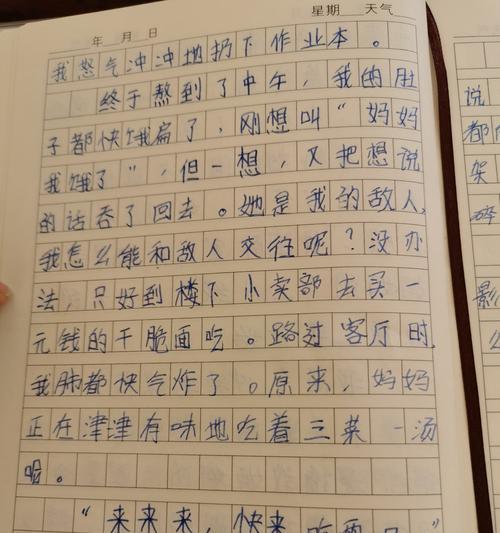 年 月 日 星期 天气
我怒气冲冲地扔下作业本。
终于熬到了中午，我的肚
子都快饿扁了，刚想叫“妈妈
我饿了”，但一想，又把想说
的话吞了回去。她是我的敌人，
我怎么能和敌人交往呢？没办
法，只好到楼下小卖部去买一
元钱的干脆面吃。路过客厅时，
我肺都快气炸了。原来，妈妈
正在津津有味地吃着三菜一汤
呢。
“来来来，快来吃
说
都
架
碎
影